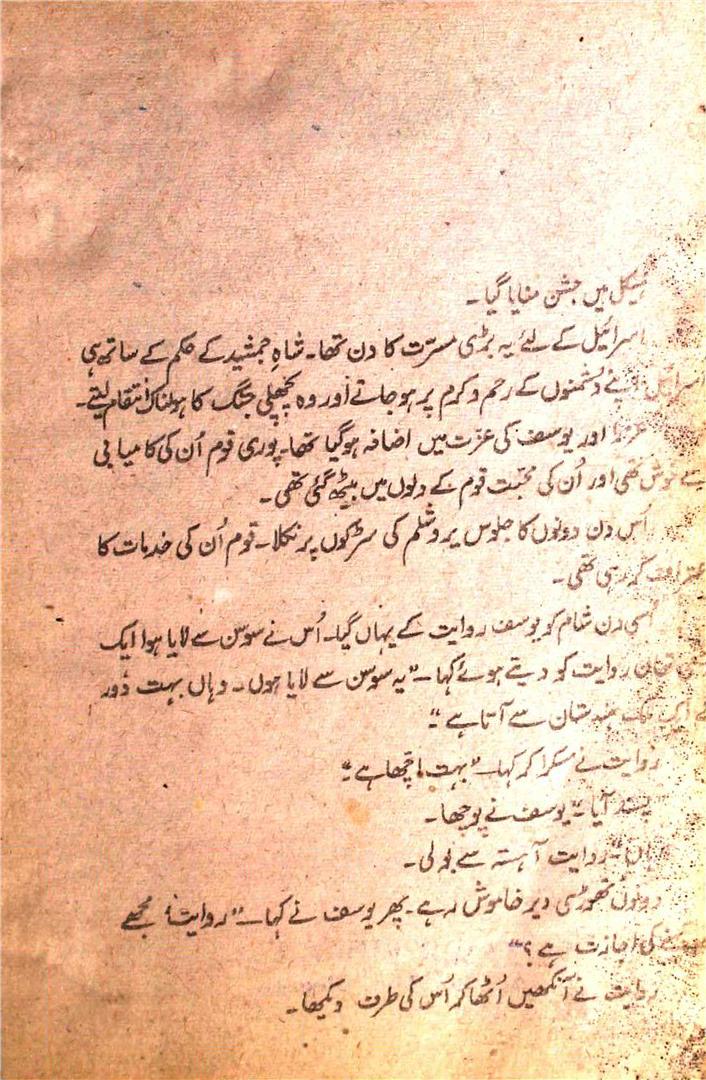 ہیکل میں جشن منایا گیا۔
اسرائیل کے لئے یہ بڑی مسرّت کا دن تھا۔ شاہِ جمشید کے حکم کے ساتھ ہی
اسرائیل اپنے دشمنوں کے رحم و کرم پر ہو جاتے اور وہ پچھلی جنگ کا ہولناک انتقام لیتے۔
عزرا اور یوسف کی عزّت میں اضافہ ہوگیا تھا۔ پوری قوم اُن کی کامیابی
سے خوش تھی اور اُن کی محبّت قوم کے دلوں میں بیٹھ گئی تھی۔
اُس دن دونوں کا جلوس یروشلم کی سڑکوں پر نکلا۔ قوم اُن کی خدمات کا
اعتراف کر رہی تھی۔
اُسی دن شام کو یوسف روایت کے یہاں گیا۔ اُس نے سوسن سے لایا ہوا ایک
تھان روایت کو دیتے ہوئے کہا۔ "یہ سوسن سے لایا ہوں۔ وہاں بہت دُور
کے ایک ملک ہندستان سے آتا ہے"۔
روایت نے مسکرا کر کہا۔ "بہت اچھا ہے"۔
پسند آیا"۔ یوسف نے پوچھا۔
ہاں"۔ روایت آہستہ سے بولی۔
دونوں تھوڑی دیر خاموش رہے۔ پھر یوسف نے کہا۔ "روایت! مجھے
کی اجازت ہے؟"
روایت نے آنکھیں اُٹھا کر اُس کی طرف دیکھا۔